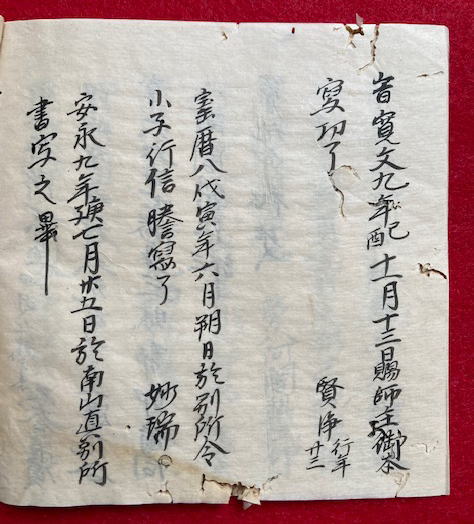 旹寛文九年己酉十一月十三日賜師主御本
寫功了
賢浄行年廿三
宝暦八戊寅年六月朔日於別所令
小子行信謄寫了
妙瑞
安永九年庚子七月廿五日於南山真別所
書写之畢